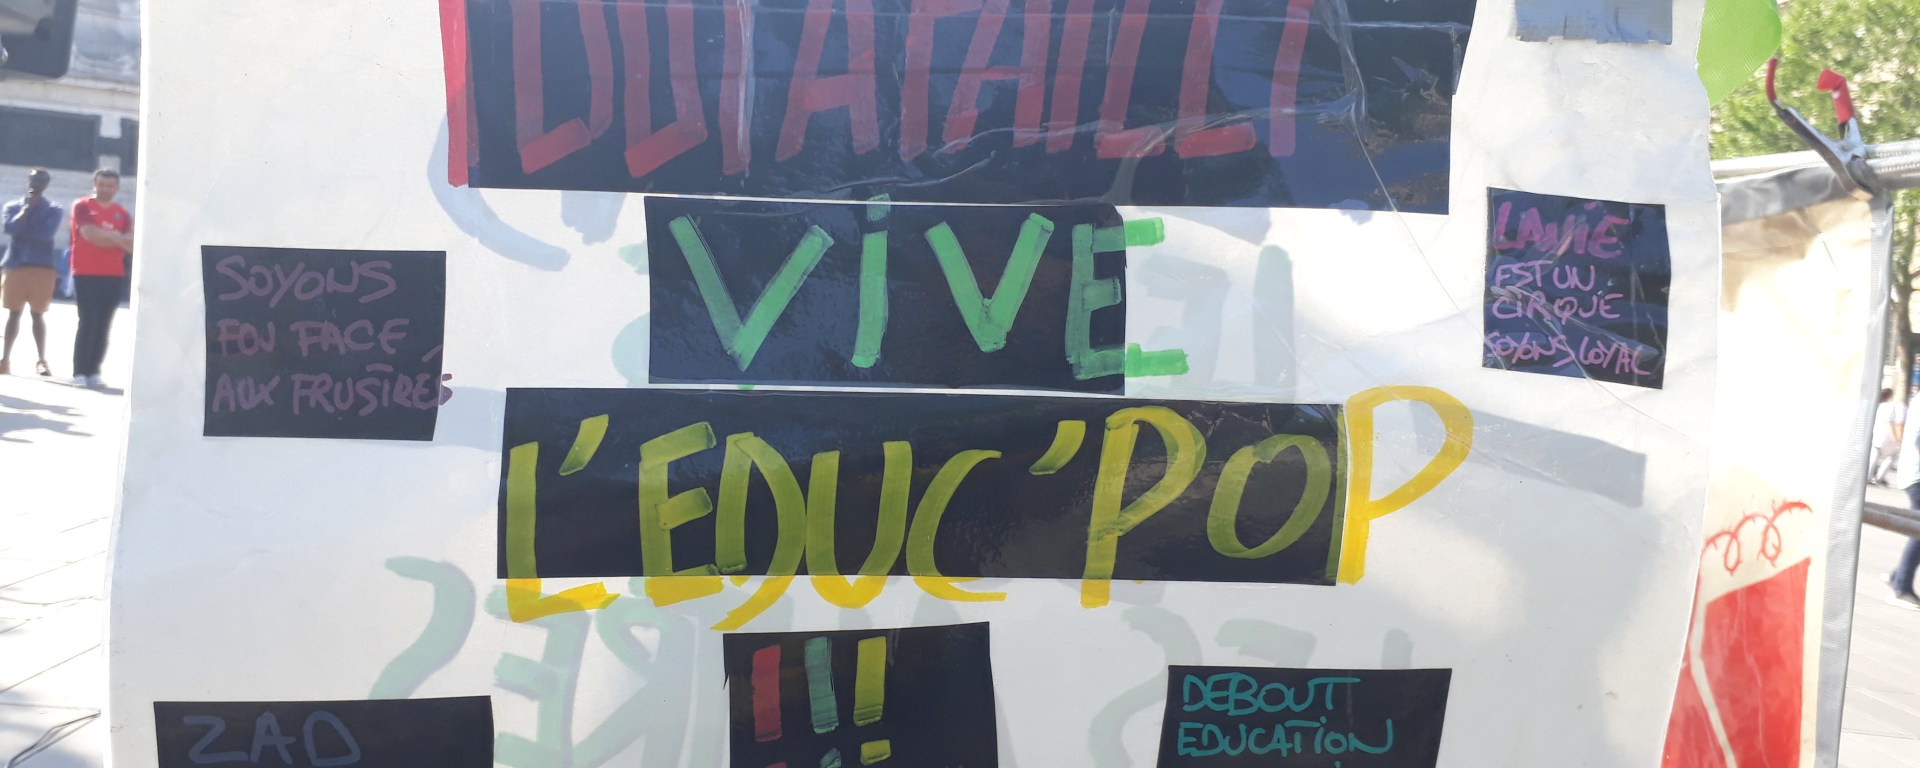 VIVE
L'EDUC'POP
!!!
SOYONS
FOU FACE
AUX FRUSTRÉS
LA VIE
EST UN
CIRQUE
SOYONS LOYAL
ZAD
DEBOUT
EDUCATION